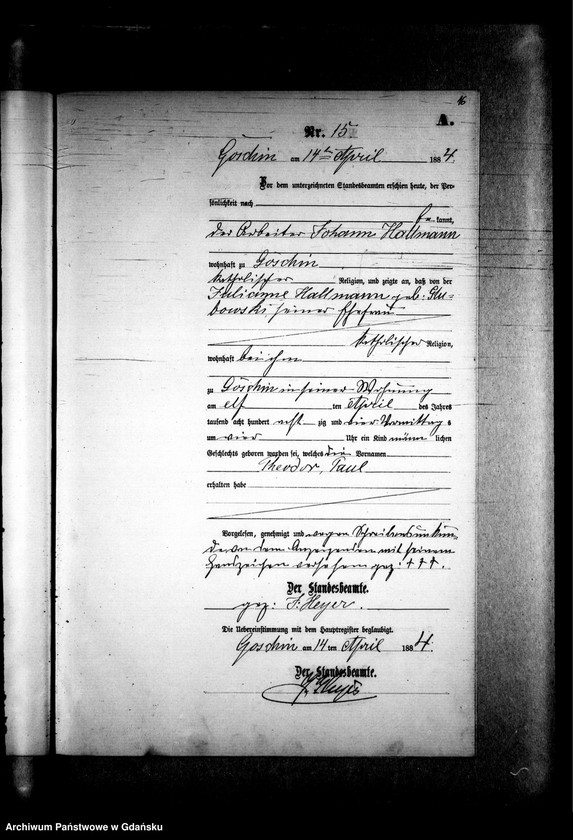 16
A.
Nr. 15
Goschin am 14ten April 1884.
Vor dem unterzeichneten Standesbeamten erschien heute, der Per-
sönlichkeit nach
be kannt,
der Arbeiter Johann Hallmann
wohnhaft zu Goschin
katholischer Religion, und zeigte an, daß von der
Julianne Hallmann geb. Gru-
bowski seiner Ehefrau
katholischer Religion,
wohnhaft bei ihm
zu Goschin in seiner Wohnung
am elf ten April des Jahres
tausend acht hundert acht zig und vier Vormittag s
um vier Uhr ein Kind männ lichen
Geschlechts geboren worden sei, welches die Vornamen
Theodor, Paul
erhalten habe
Vorgelesen, genehmigt und wegen Schreibensunkun-
de von dem Anzeigenden mit seinem
Handzeichen versehen gez: +++.
Der Standesbeamte.
gez: F. Heyer.
Die Uebereinstimmung mit dem Hauptregister beglaubigt.
Goschin am 14 ten April 1884.
Der Standesbeamte.
F. Heyer
Archiwum Państwowe w Gdańsku